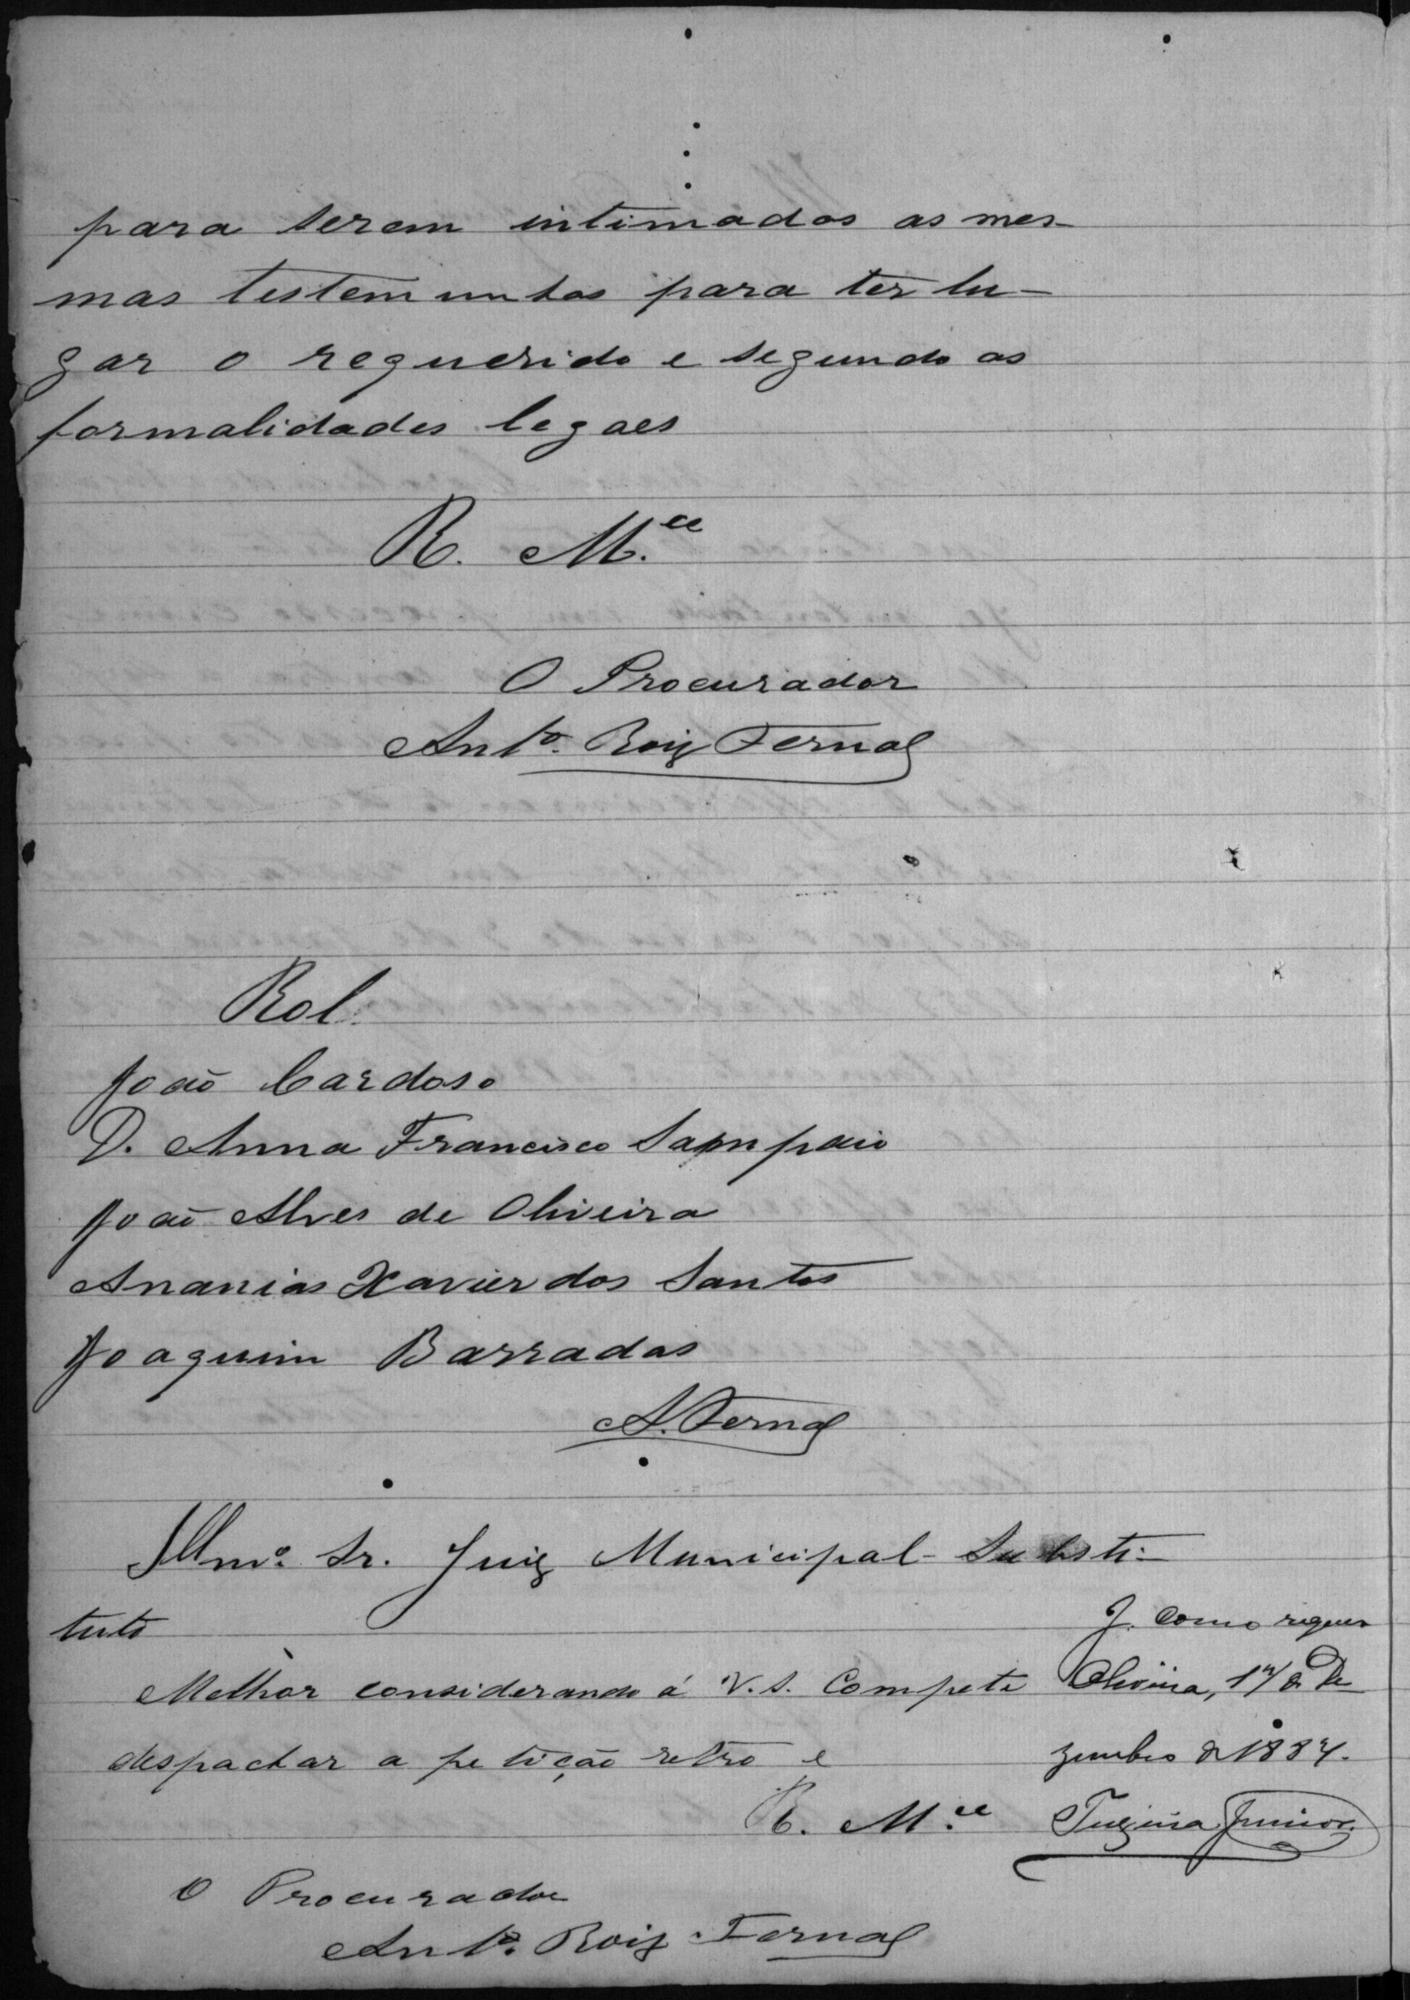 para serem intimados as mes-
mas testemunhas para ter lu-
gar o requerido e segundo as
formalidades legaes
R. M.ce
O Procurador
Anto. Roiz Fernal
Rol.
João Cardoso
D. Anna Francisco Sampaio
João Alves de Oliveira
Ananias Xavier dos Santos
Joaquim Barradas
A. Fernal
Illmo. Sr. Juiz Municipal Substi-
tuto
Melhor considerando á V. S. compete
despachar a petição retro e
R. M.ce
O Procurador
Anto. Roiz Fernal
J. Como requer
Oliveira, 17 de De
zembro de 1884.
Junior.